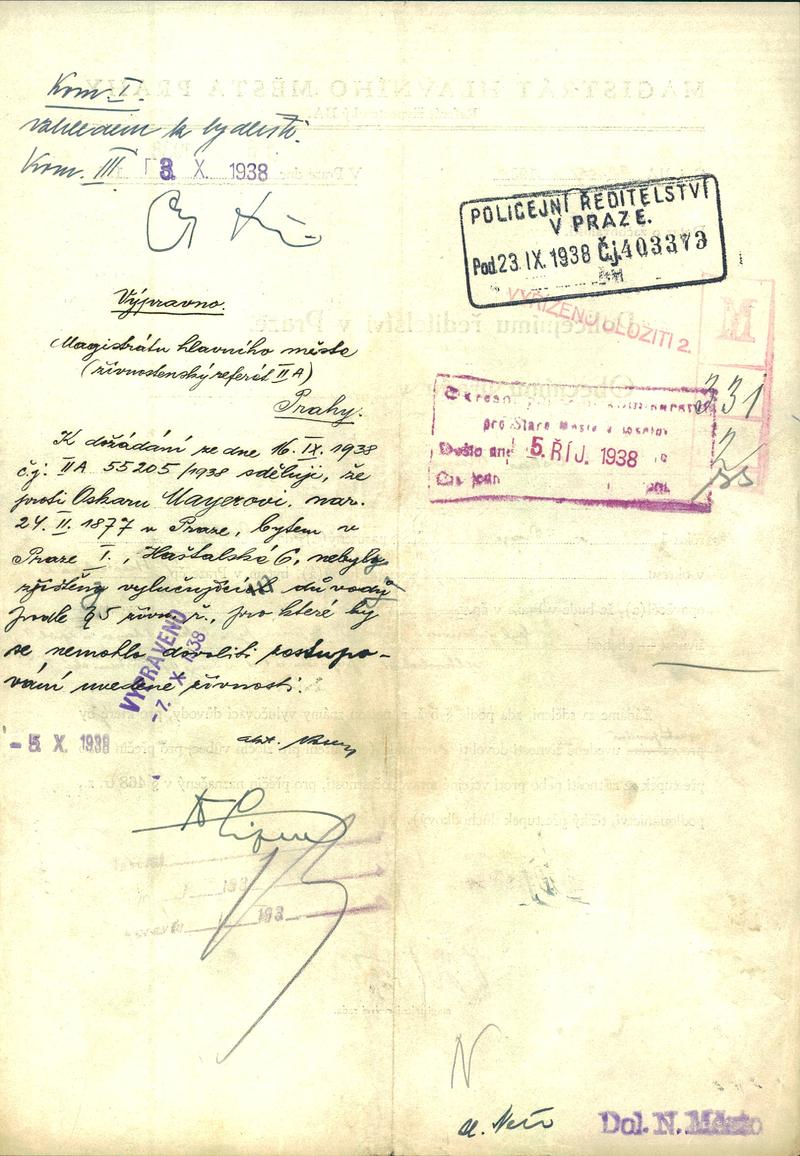 Kom. I.
vzhledem k bydlišti.
Kom. III
3. X. 1938
POLICEJNÍ ŘEDITELSTVÍ
V PRAZE.
Pod. 23. IX. 1938 Čj. 403373
VYŘÍZENO ULOŽITI 2.
Výpravno.
Magistrátu hlavního města
(živnostenský referát II A)
Prahy.
K dožádání ze dne 16. IX. 1938
č.j. IIA 55205/1938 sděluji, že
proti Oskaru Mayerovi, nar.
24. II. 1877 v Praze, bytem v
Praze I., Haštalská 6, nebyly
zjištěny vylučující důvody
podle § 5 živn. ř., pro které by
se nemohlo dovoliti postupo-
vání uvedené živnosti.
VYPRAVENO
-7. X. 1938
- 5. X. 1938
pro Staré Město a Josefov
Došlo dne 5. ŘÍJ. 1938
231
2
N
Dol. N. Město